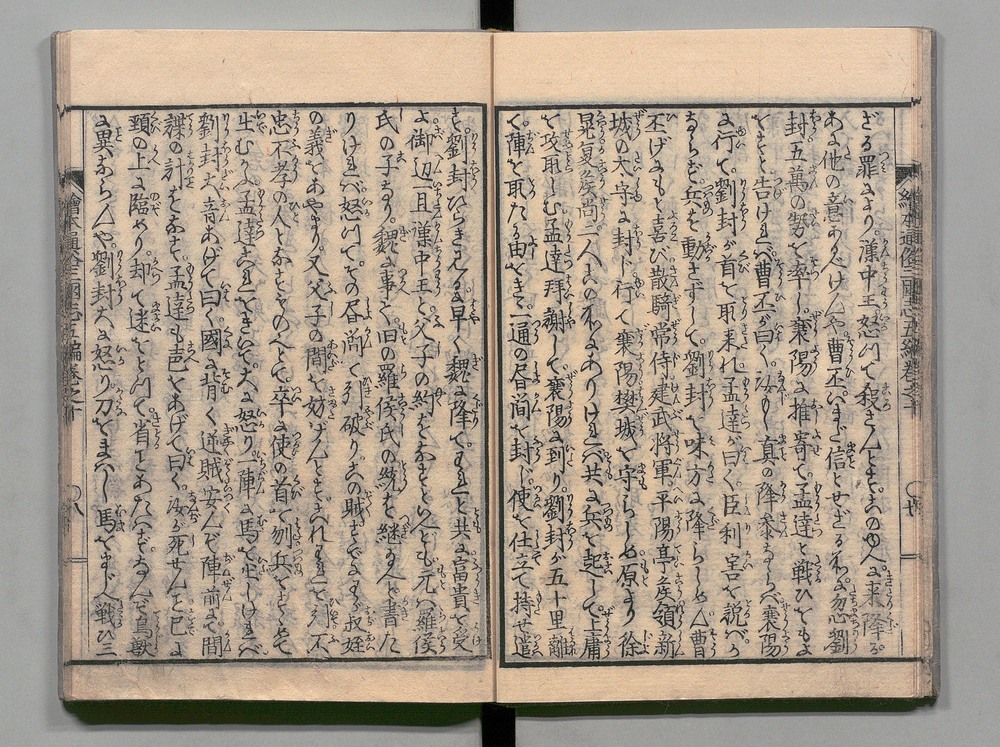 ざる罪により。漢中王怒りて殺さんとす。このゆへに来降る。
あに他の意あるべけんや曹丕いまだ信とせざる所に。忽ち劉
封五萬の勢を率し。襄陽に推寄て孟達と戦ひをもよ
をすと告ければ曹丕が曰く。汝もし真の降参ならば襄陽
に行て。劉封が首を取来れ孟達が曰く臣利害を説べか
ならず兵を動さずして。劉封を味方に降らしめん曹
丕げにもと喜び散騎常侍建武將軍平陽亭侯領新
城の大守に封じ行て襄陽樊城を守らしめ原より徐
晃夏侯尚二人この所にありければ共に兵を起して。上庸
を攻取しむ孟達拜謝して襄陽に到り。劉封が五十里離
く。陣を取たる由をきき。一通の書簡を封じ。使を仕立て持せ遣
す。劉封ひらき見るに早く魏に降て。われと共に富貴を受
よ御辺一旦漢中王と。父子の約をなすといへども元羅侯
氏の子なり。魏に事て。旧の羅侯氏の統を継なんと書た
りければ怒りてその書簡を引破りこの賊すでにわが叔姪
の義をあやまり。又父子の間を妨げんとす。われをして。不
忠不孝の人となさんとのことぞ。卒に使の首を刎兵をすすめて
生むかふ孟達これをきいて。大に怒り。一陣に馬を出しければ
劉封大音あげて曰く國に背く逆賊安んぞ陣前に間
諜の計をなす。孟達も声をあげて曰く。汝が死せんこと已に
頸の上に臨めり。却て迷をとりて。省ことあたはず。なんぞ鳥獣
に異ならんや。劉封大に怒り。刀をまはし馬をまじへ戦ひ三